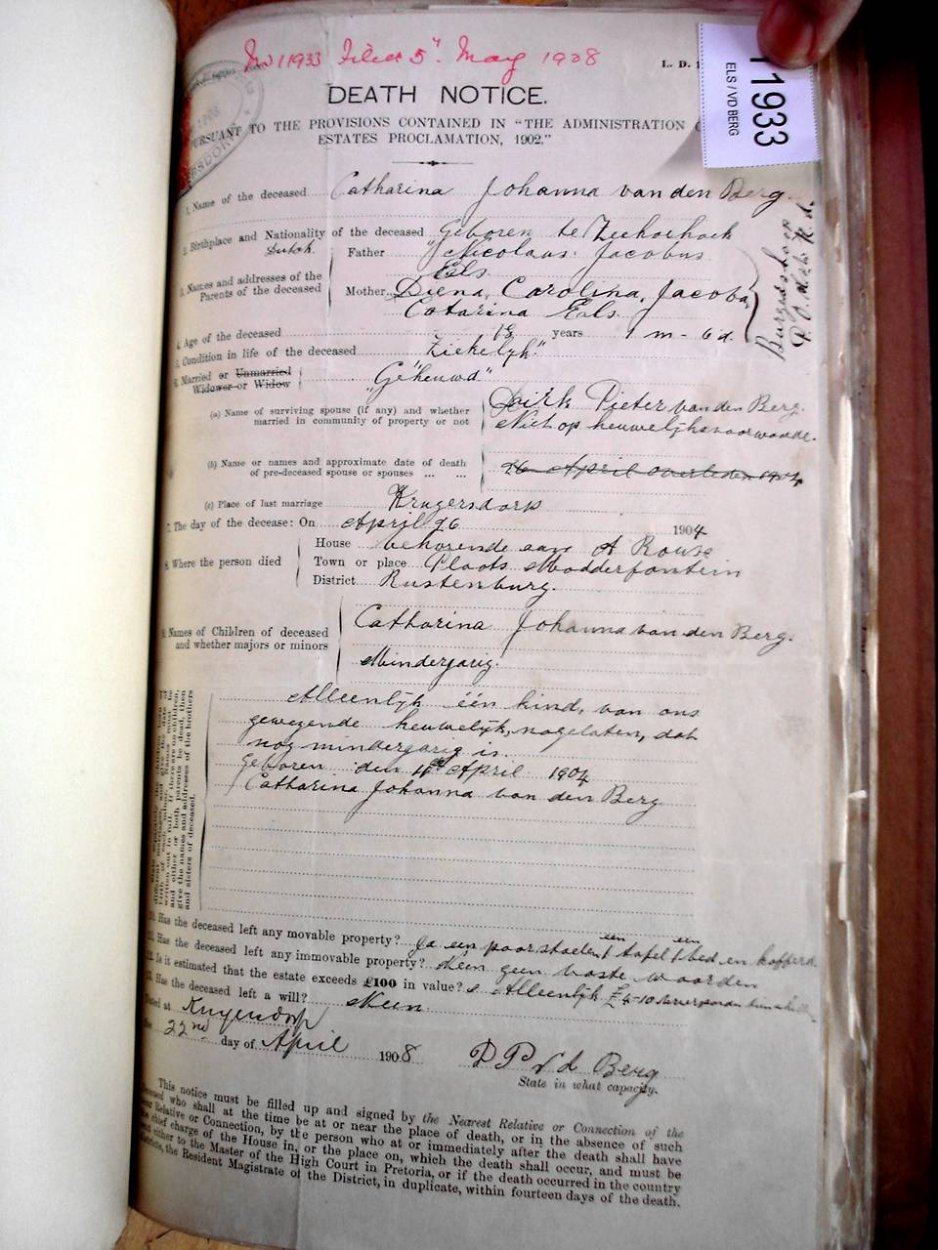 No 11933 Filed 5th May 1908
L. D.
11933
ELS / VD BERG
DEATH NOTICE.
PURSUANT TO THE PROVISIONS CONTAINED IN "THE ADMINISTRATION
ESTATES PROCLAMATION, 1902."
1. Name of the deceased Catharina Johanna van den Berg.
2. Birthplace and Nationality of the deceased Geboren te Zeekoehoek
Dutch.
3. Names and addresses of the Parents of the deceased
Father Nicolaas Jacobus
Els
Mother Diena, Carolina, Jacoba,
Catarina Els.
4. Age of the deceased years 1 m - 6 d.
5. Condition in life of the deceased Ziekelyk"
6. Married or Unmarried
Widower or Widow
"Gehuwd"
(a) Name of surviving spouse (if any) and whether
married in community of property or not
Dirk Pieter van den Berg.
Niet op heuwelijksvoorwaarde.
(b) Name or names and approximate date of death
of pre-deceased spouse or spouses ... ...
26 April overleden 1904
(c) Place of last marriage Krugersdorp
7. The day of the decease: On April 26 1904
8. Where the person died
House behorende aan A Rouse
Town or place Plaats Modderfontein
District Rustenburg.
9. Names of Children of deceased
and whether majors or minors
Catharina Johanna van den Berg.
Minderjarig.
written out in full. If there are no children,
and either or both parents be dead, then
give the names and addresses of the brothers
and sisters of deceased.
Alleenlijk één kind, van ons
gewezende heuwelijk, nagelaten, dat
nog minderjarig is.
geboren den April 1904
Catharina Johanna van den Berg
10. Has the deceased left any movable property? Ja een paar stoelen, een tafel, een bed en
11. Has the deceased left any immovable property? Neen geen vaste
12. Is it estimated that the estate exceeds £100 in value? Alleenlijk
13. Has the deceased left a will? Neen.
Dated at Krugersdorp
the 22nd day of April 1908
D P v d Berg
State in what capacity.
This notice must be filled up and signed by the Nearest Relative or Connection of the
Deceased who shall at the time be at or near the place of death, or in the absence of such
near Relative or Connection, by the person who at or immediately after the death shall have
the chief charge of the House in, or the place on, which the death shall occur, and must be
sent either to the Master of the High Court in Pretoria, or if the death occurred in the country
districts, the Resident Magistrate of the District, in duplicate, within fourteen days of the death.